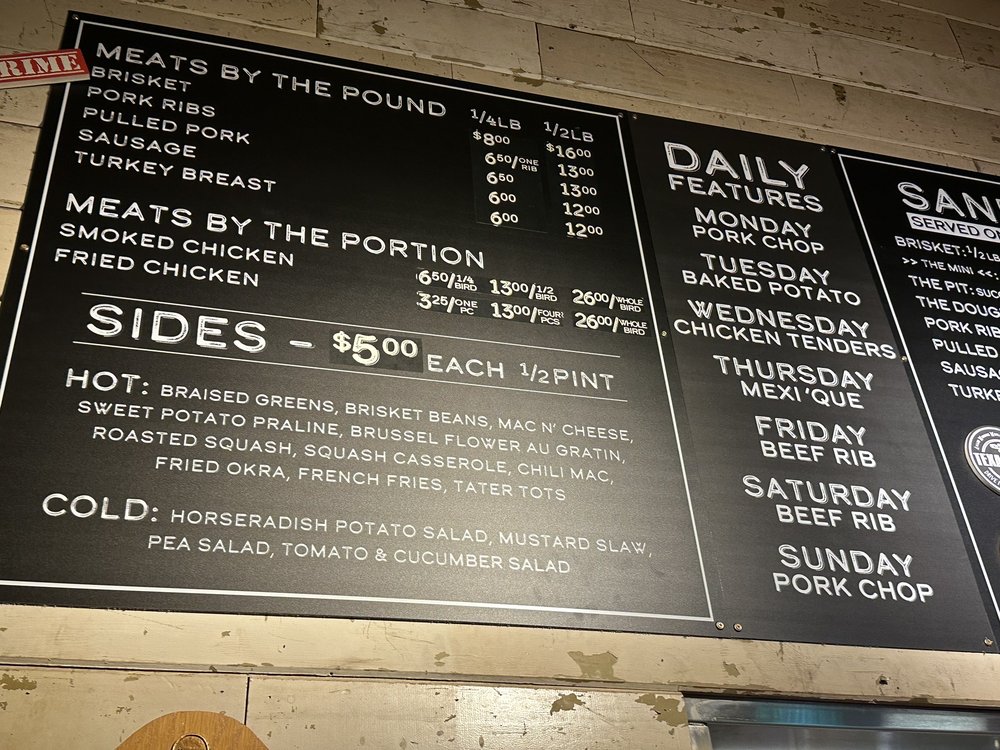 RIME
MEATS BY THE POUND 1/4LB 1/2LB
BRISKET $8.00 $16.00
PORK RIBS 6.50/ONE RIB 13.00
PULLED PORK 6.50 13.00
SAUSAGE 6.00 12.00
TURKEY BREAST 6.00 12.00
MEATS BY THE PORTION
SMOKED CHICKEN 6.50/1/4 BIRD 13.00/1/2 BIRD 26.00/WHOLE BIRD
FRIED CHICKEN 3.25/ONE PC 13.00/FOUR PCS 26.00/WHOLE BIRD
SIDES - $5.00 EACH 1/2 PINT
HOT: BRAISED GREENS, BRISKET BEANS, MAC N' CHEESE,
SWEET POTATO PRALINE, BRUSSEL FLOWER AU GRATIN,
ROASTED SQUASH, SQUASH CASSEROLE, CHILI MAC,
FRIED OKRA, FRENCH FRIES, TATER TOTS
COLD: HORSERADISH POTATO SALAD, MUSTARD SLAW,
PEA SALAD, TOMATO & CUCUMBER SALAD
DAILY
FEATURES
MONDAY
PORK CHOP
TUESDAY
BAKED POTATO
WEDNESDAY
CHICKEN TENDERS
THURSDAY
MEXI 'QUE
FRIDAY
BEEF RIB
SATURDAY
BEEF RIB
SUNDAY
PORK CHOP
SAN
SERVED ON
BRISKET: 1/2 LB
>> THE MINI <<:
THE PIT: SUC
THE DOUG
PORK RIB
PULLED
SAUSA
TURKE
TEXA